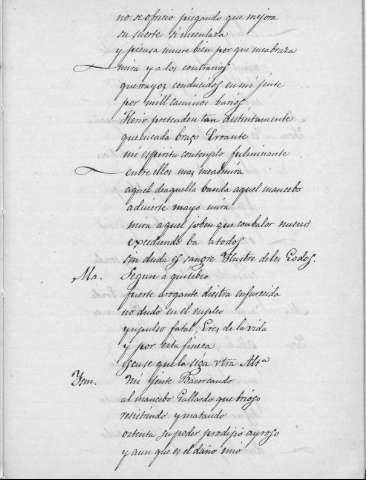 no se ofrecio juzgando que mejora
su suerte si
y piensa muere bien por que me abraza
mira ya los contrarios
que rayos conducidos en mi jente
por mill caminos barios
Herir pretenden tan distintamente
que en cada braço Errante
mi espiritu contemplo fulminante
entre ellos mas me admira
aquel de aquella banda aquel mancebo
advierte mayo mira
mira aquel joben que con balor nuevo
excediendo ba a todos
sin duda es sangre Ylustre de los Godos.
Ma. Segun a
fuerte arogante diestro enfurecido
no dudo en el empleo
ympulso fatal, Eres de la vida
y por esta fineza
es que la siga vtra Altª
Ym. mi jente
al mancebo Gallardo que brioso
resistiendo y matando
ostenta su poder prodijio ayroso
y aun que es el daño mio